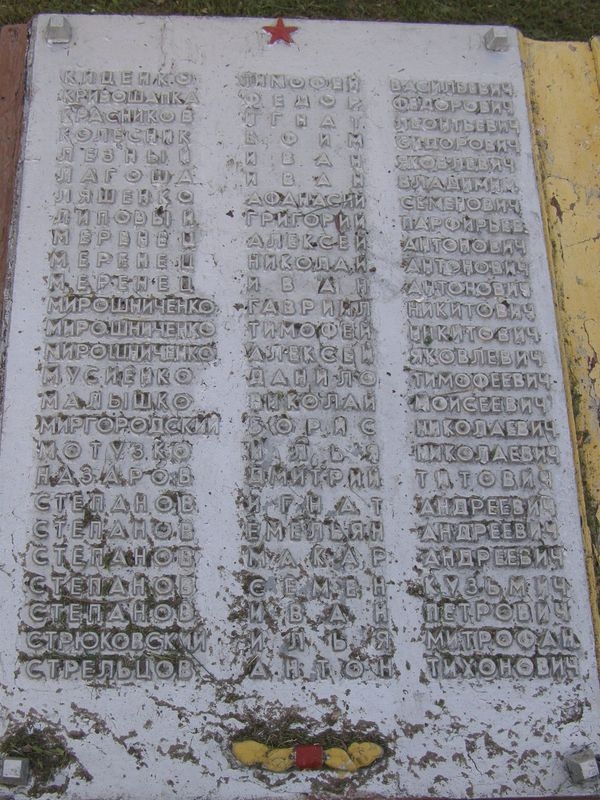 КИЦЕНКО ТИМОФЕЙ ВАСИЛЬЕВИЧ
КРИВОШАПКА ФЕДОР ФЕДОРОВИЧ
КРАСНИКОВ ИГНАТ ЛЕОНТЬЕВИЧ
КОЛЕСНИК ЕФИМ СИДОРОВИЧ
ЛЕЗНЫЙ ИВАН ЯКОВЛЕВИЧ
ЛАГОША ИВАН ВЛАДИМИР
ЛЯШЕНКО АФАНАСИЙ СЕМЕНОВИЧ
ЛИПОВЫЙ ГРИГОРИЙ ПАРФИРЬЕВ
МЕРЕНЕЦ АЛЕКСЕЙ АНТОНОВИЧ
МЕРЕНЕЦ НИКОЛАЙ АНТОНОВИЧ
МЕРЕНЕЦ ИВАН АНТОНОВИЧ
МИРОШНИЧЕНКО ГАВРИИЛ НИКИТОВИЧ
МИРОШНИЧЕНКО ТИМОФЕЙ НИКИТОВИЧ
МИРОШНИЧЕНКО АЛЕКСЕЙ ЯКОВЛЕВИЧ
МУСИЕНКО ДАНИЛО ТИМОФЕЕВИЧ
МАЛЫШКО НИКОЛАЙ МОИСЕЕВИЧ
МИРГОРОДСКИЙ БОРИС НИКОЛАЕВИЧ
МОТУЗКО ИЛЬЯ НИКОЛАЕВИЧ
НАЗАРОВ ДМИТРИЙ ТИТОВИЧ
СТЕПАНОВ ИГНАТ АНДРЕЕВИЧ
СТЕПАНОВ ЕМЕЛЬЯН АНДРЕЕВИЧ
СТЕПАНОВ МАКАР АНДРЕЕВИЧ
СТЕПАНОВ СЕМЕН КУЗЬМИЧ
СТЕПАНОВ ИВАН ПЕТРОВИЧ
СТРЮКОВСКИЙ ИЛЬЯ МИТРОФАН
СТРЕЛЬЦОВ АНТОН ТИХОНОВИЧ